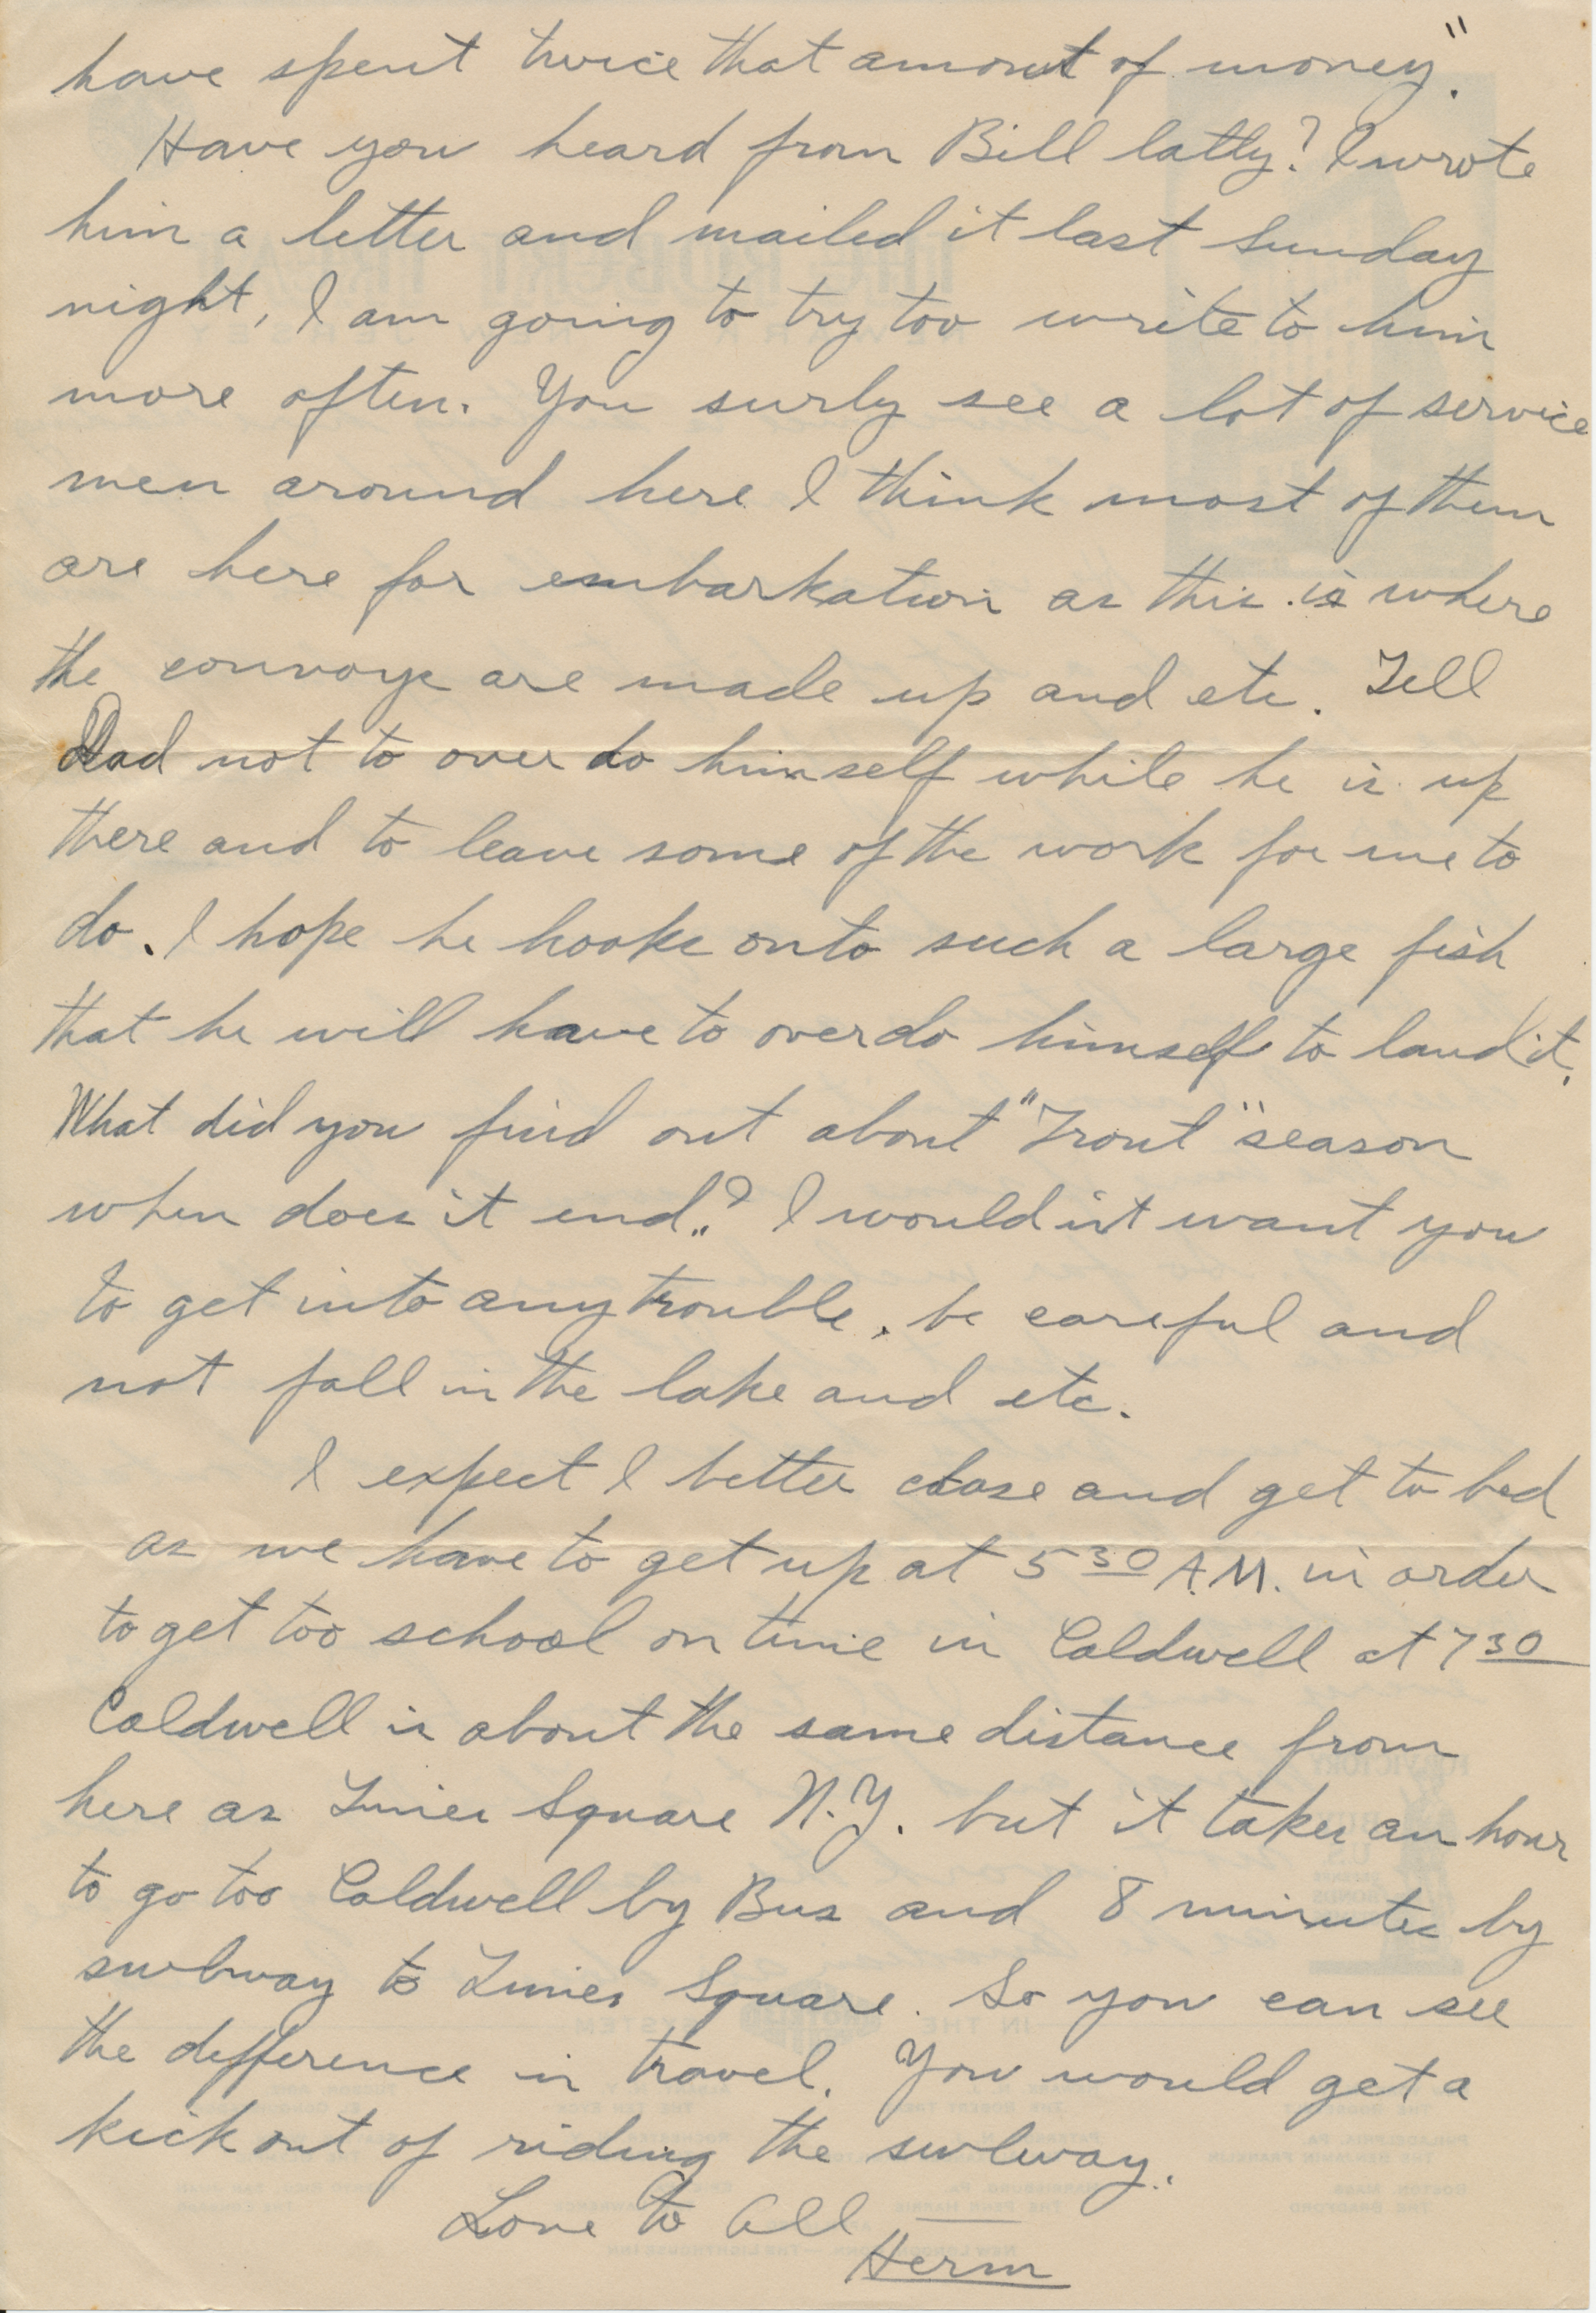 have spent twice that amount of money."
Have you heard from Bill latly? I wrote
him a letter and mailed it last Sunday
night, I am going to try too write to him
more often. You surly see a lot of service
men around here I think most of them
are here for embarkation as this is where
the convoys are made up and etc. Tell
Dad not to over do himself while he is up
there and to leave some of the work for me to
do. I hope he hooks onto such a large fish
that he will have to overdo himself to land it.
What did you find out about "Trout" season
when does it end.? I would'nt want you
to get into any trouble, be careful and
not fall in the lake and etc.
I expect I better close and get to bed
as we have to get up at 5 30 A.M. in order
to get too school on time in Caldwell at 7 30
Caldwell is about the same distance from
here as Times Square N.Y. but it takes an hour
to go too Caldwell by Bus and 8 minutes by
subway to Times Square. So you can see
the difference in travel. You would get a
kick out of riding the subway.
Love to All
Herm